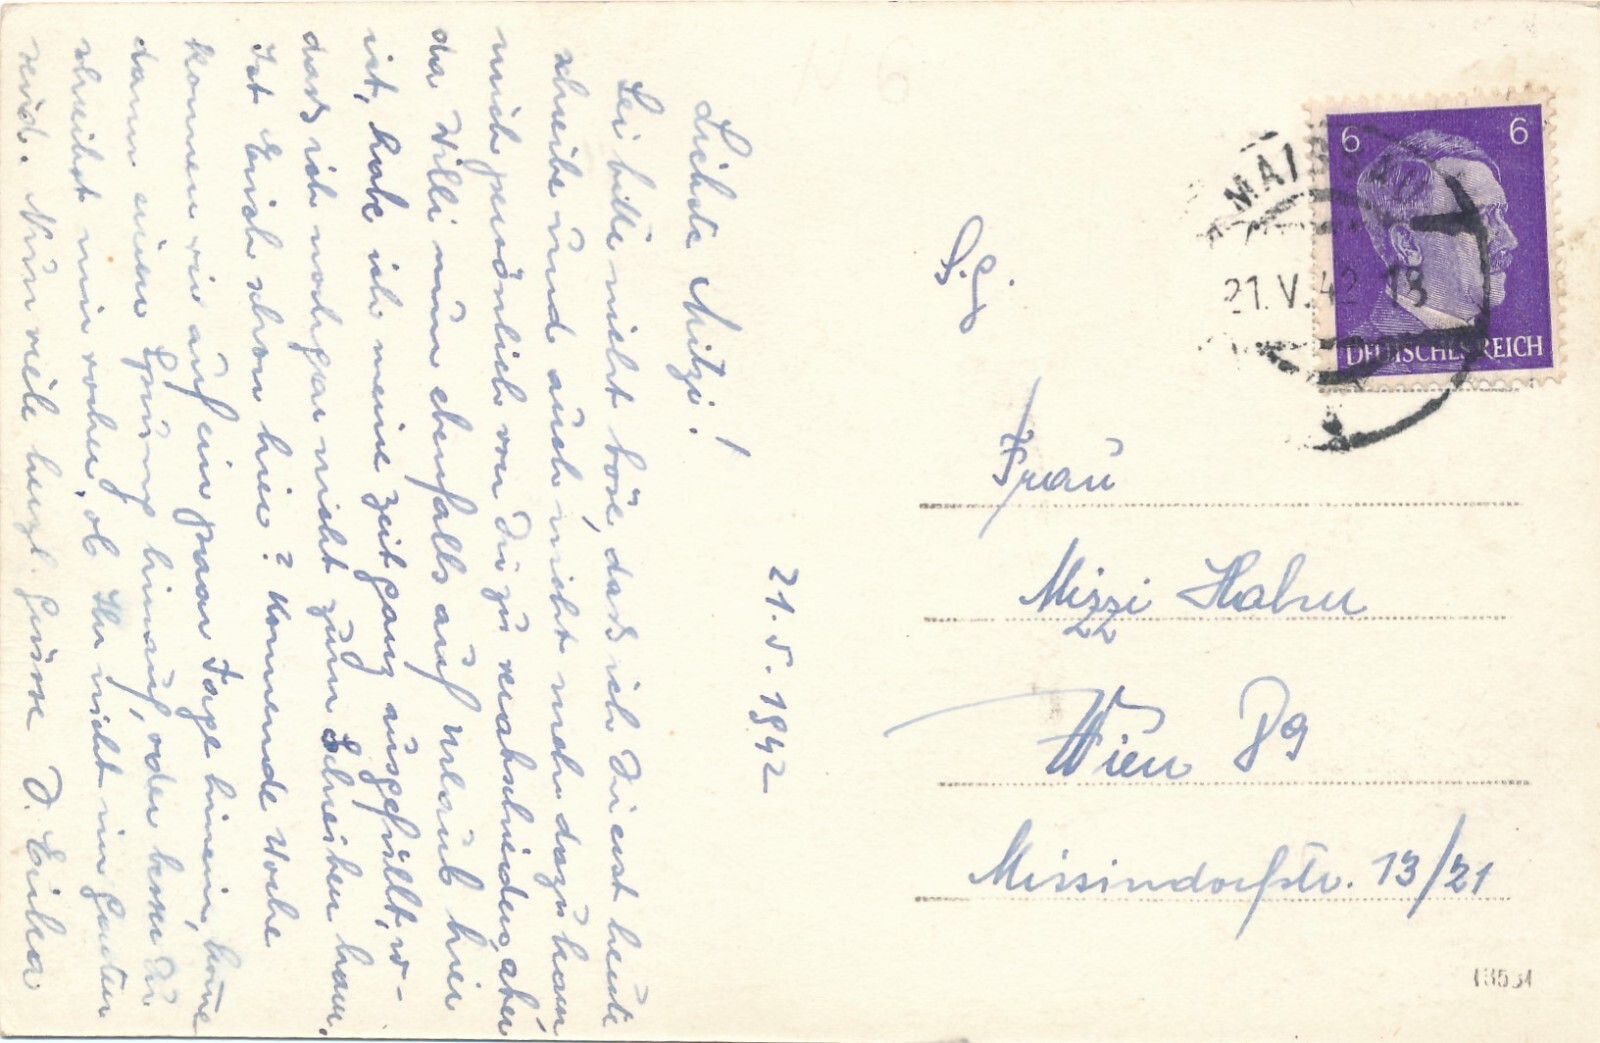 21.5.1942
Liebste Mitzi!
Sei bitte nicht böse, dass ich Dir erst heute
schreibe und auch nicht mehr dazu kam
mich persönlich von Dir zu verabschieden, aber
da Willi nun ebenfalls auf Urlaub hier
ist, habe ich meine Zeit ganz ausgefüllt, so-
dass ich noch gar nicht zum Schreiben kam.
Ist Erich schon hier? Kommende Woche
kommen wir auf ein paar Tage hinein, komme
dann einen Sprung hinauf, oder besser Du
schreibst mir vorher, ob Ihr nicht im Garten
seid. Nun viele herzl. Grüsse D. Erika
S.g.
Frau
Mizzi Hahn
Wien 89
Missindorfstr. 13/21
MAISSAU
21.V.42 18
6 6
DEUTSCHES REICH
13531